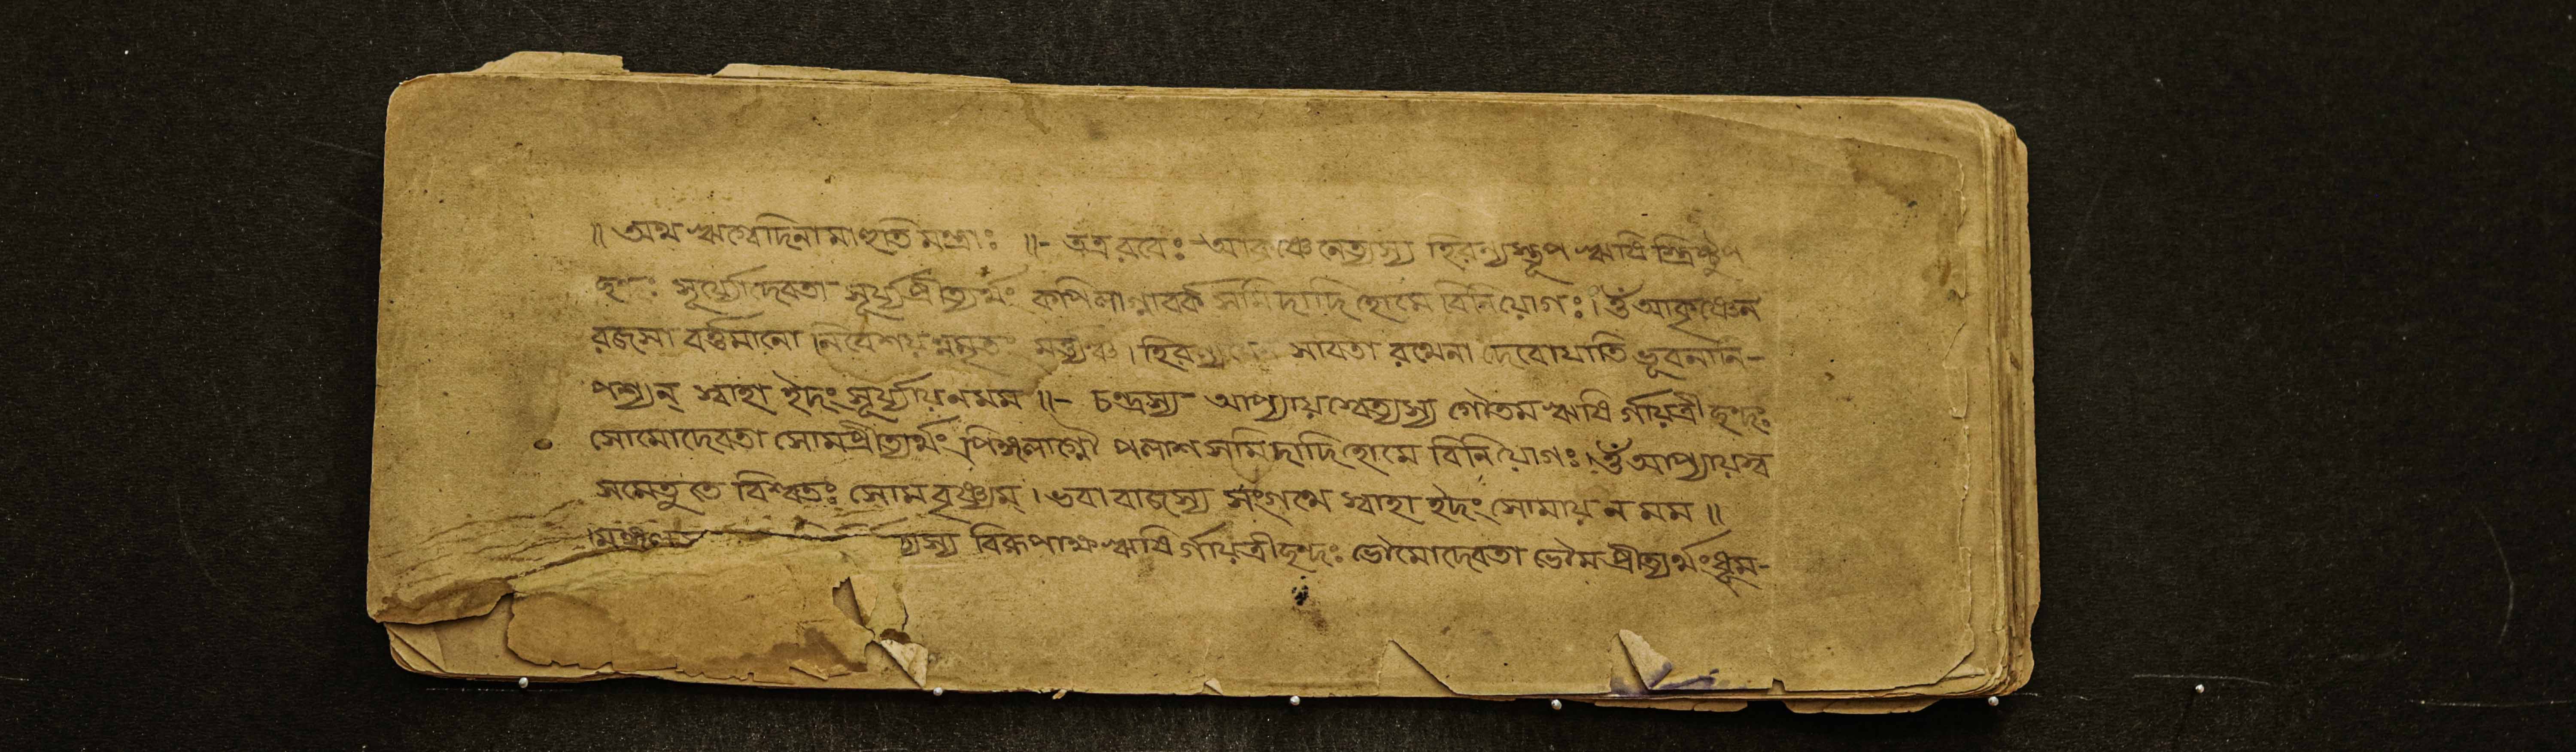 ॥ অথ ঋগ্বেদিনামাহুতি মন্ত্রাঃ ॥- তত্র রবেঃ- আকৃষ্ণেনেত্যস্য হিরন্যস্তূপ ঋষি স্ত্রিষ্টুপ
ছন্দঃ সূর্য্যোদেবতা সূর্য্যপ্রীত্যর্থং কপিলাগ্নাবর্ক সমিদাদি হোমে বিনিয়োগঃ। ওঁ আকৃষ্ণেন
রজসা বর্ত্তমানো নিবেশয়ন্নমৃতং মর্ত্ত্যঞ্চ। সবিতা রথেনা দেবোযাতি ভূবনানি-
পশ্যন্ স্বাহা ইদং সূর্য্যায় ন মম ॥- চন্দ্রস্য- আপ্যায়স্বেত্যস্য গৌতম ঋষি র্গায়ত্রী ছন্দঃ
সোমোদেবতা সোমপ্রীত্যর্থং পিঙ্গলাগ্নৌ পলাশ সমিদাদি হোমে বিনিয়োগঃ। ওঁ আপ্যায়স্ব
সমেতু তে বিশ্বতঃ সোম বৃষ্ণ্যম্। ভবা বাজস্য সংগথে স্বাহা ইদং সোমায় ন মম ॥
ত্যস্য বিরূপাক্ষ ঋষি র্গায়ত্রীছন্দঃ ভৌমোদেবতা ভৌম প্রীত্যর্থং ধূম-